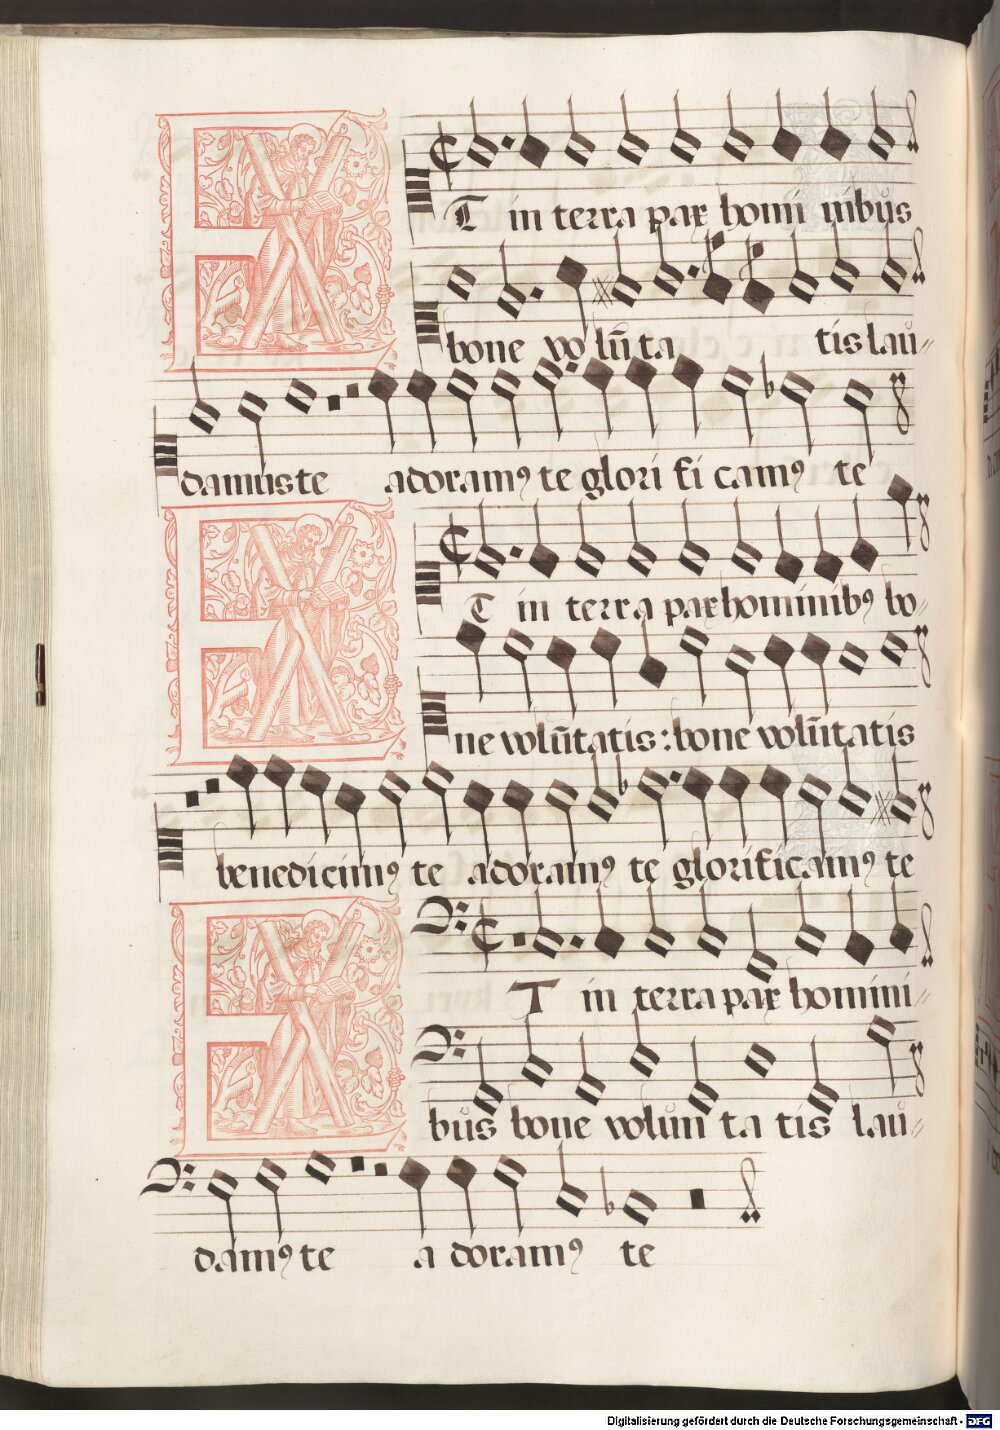 ET in terra pax homi nibus
bone vo lūta tis lau-
damus te adoramꝰ te glori fi camꝰ te
ET in terra pax hominibꝰ bo-
ne volūtatis: bone volūtatis
benedicimꝰ te adoramꝰ te glorificamꝰ te
ET in terra pax homini-
bus bone volun ta tis lau-
damꝰ te a doramꝰ te
Digitalisierung gefördert durch die Deutsche Forschungsgemeinschaft - DFG